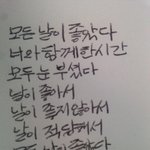 모든 날이 좋았다
너와 함께한 시간
모두 눈 부셨다
날이 좋아서
날이 좋지않아서
날이 적당해서
모든 날이 좋았다